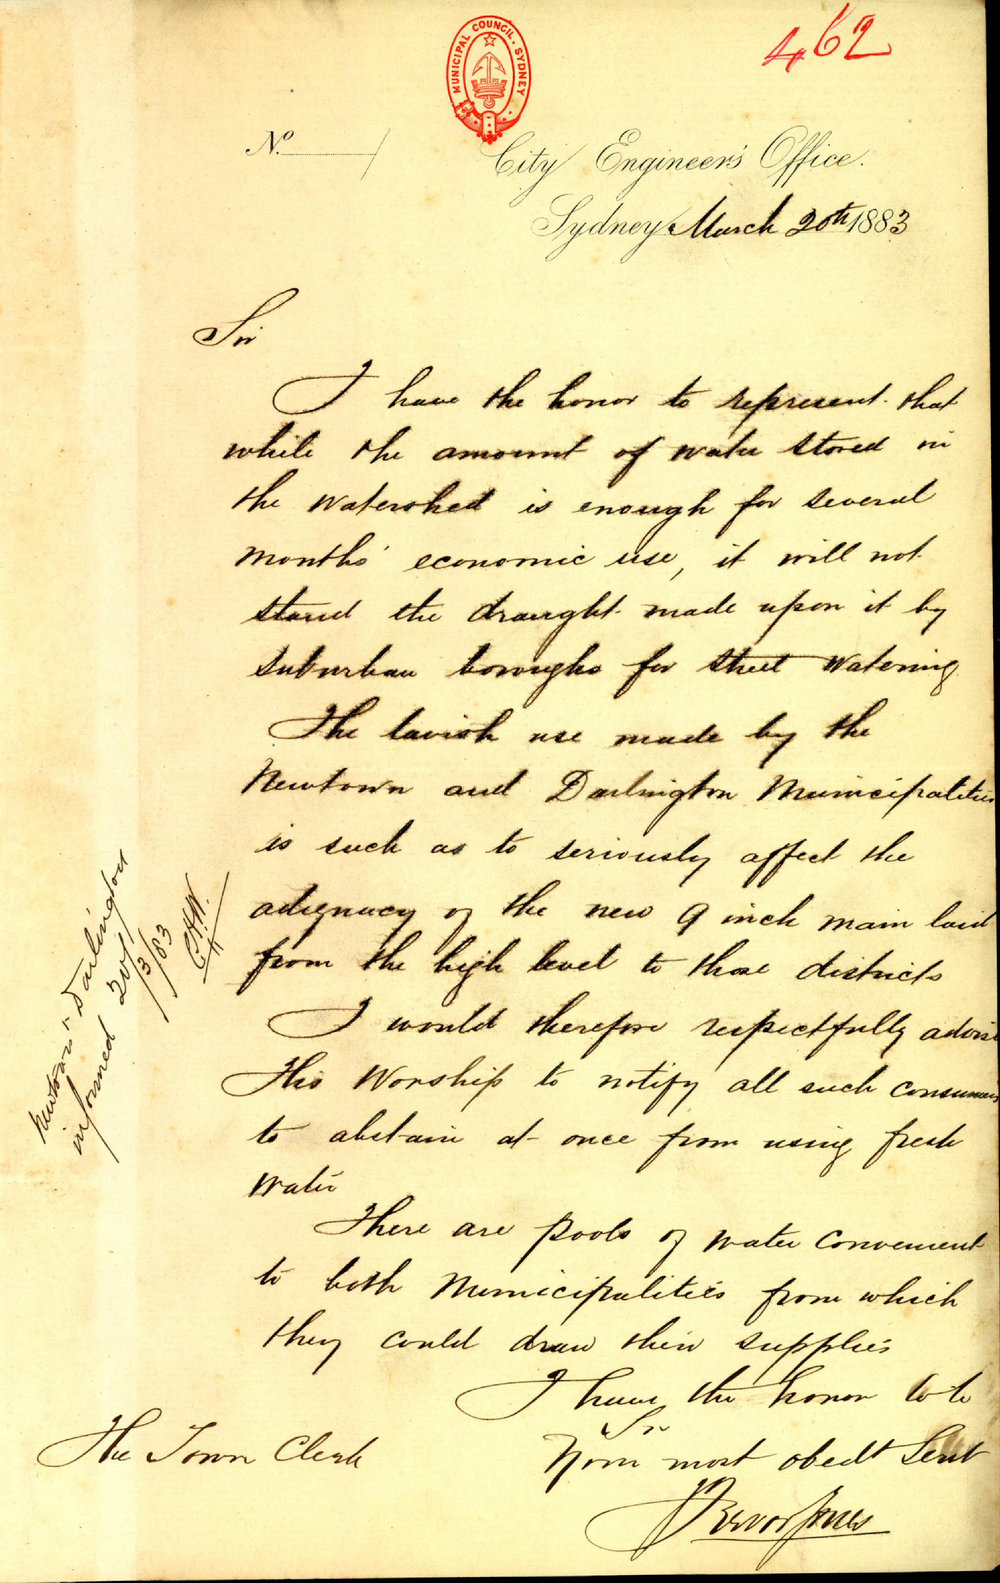 462
MUNICIPAL COUNCIL. SYDNEY
No. /
City Engineer's Office.
Sydney March 20th 1883
Sir
I have the honor to represent that
while the amount of water stored in
the watershed is enough for several
months' economic use, it will not
stand the draught made upon it by
suburban boroughs for street watering
The lavish use made by the
Newtown and Darlington Municipalities
is such as to seriously affect the
adequacy of the new 9 inch main laid
from the high level to those districts
I would therefore respectfully advise
His Worship to notify all such consumers
to abstain at once from using fresh
water
There are pools of water convenient
to both Municipalities from which
they could draw their supplies
I have the honor to be
Sir
Your most obedt Servt
Trevor Jones
The Town Clerk
Newtown & Darlington
informed 20/3/83
C.H.W.